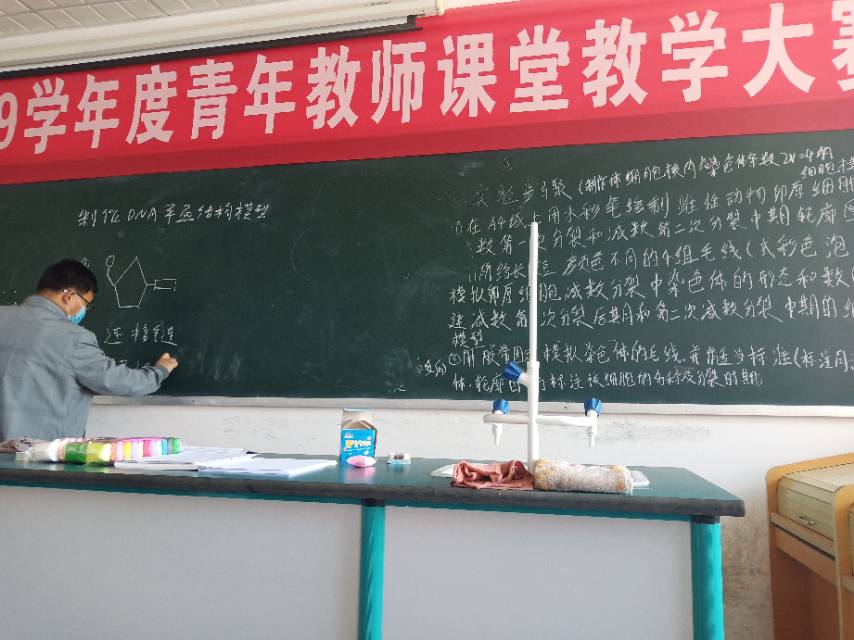 9学年度青年教师课堂教学大赛
制作DNA双螺旋结构模型
连接键
实验步骤(制作体细胞核内染色体年数2N=4的
细胞模
①在A4纸上用水彩笔绘制雌性动物卵原细胞
数第一次分裂和减数第二次分裂中期轮廓图
颜色不同的4组毛线(或彩色泡
模拟卵原细胞减数分裂中染色体的形态和数
述减数第一次分裂后期和第二次减数分裂中期的细
模型
用胶带固定模拟染色体的毛线,并适当标准(标注同
体,轮廓图 标注该细胞的名称及分裂时期